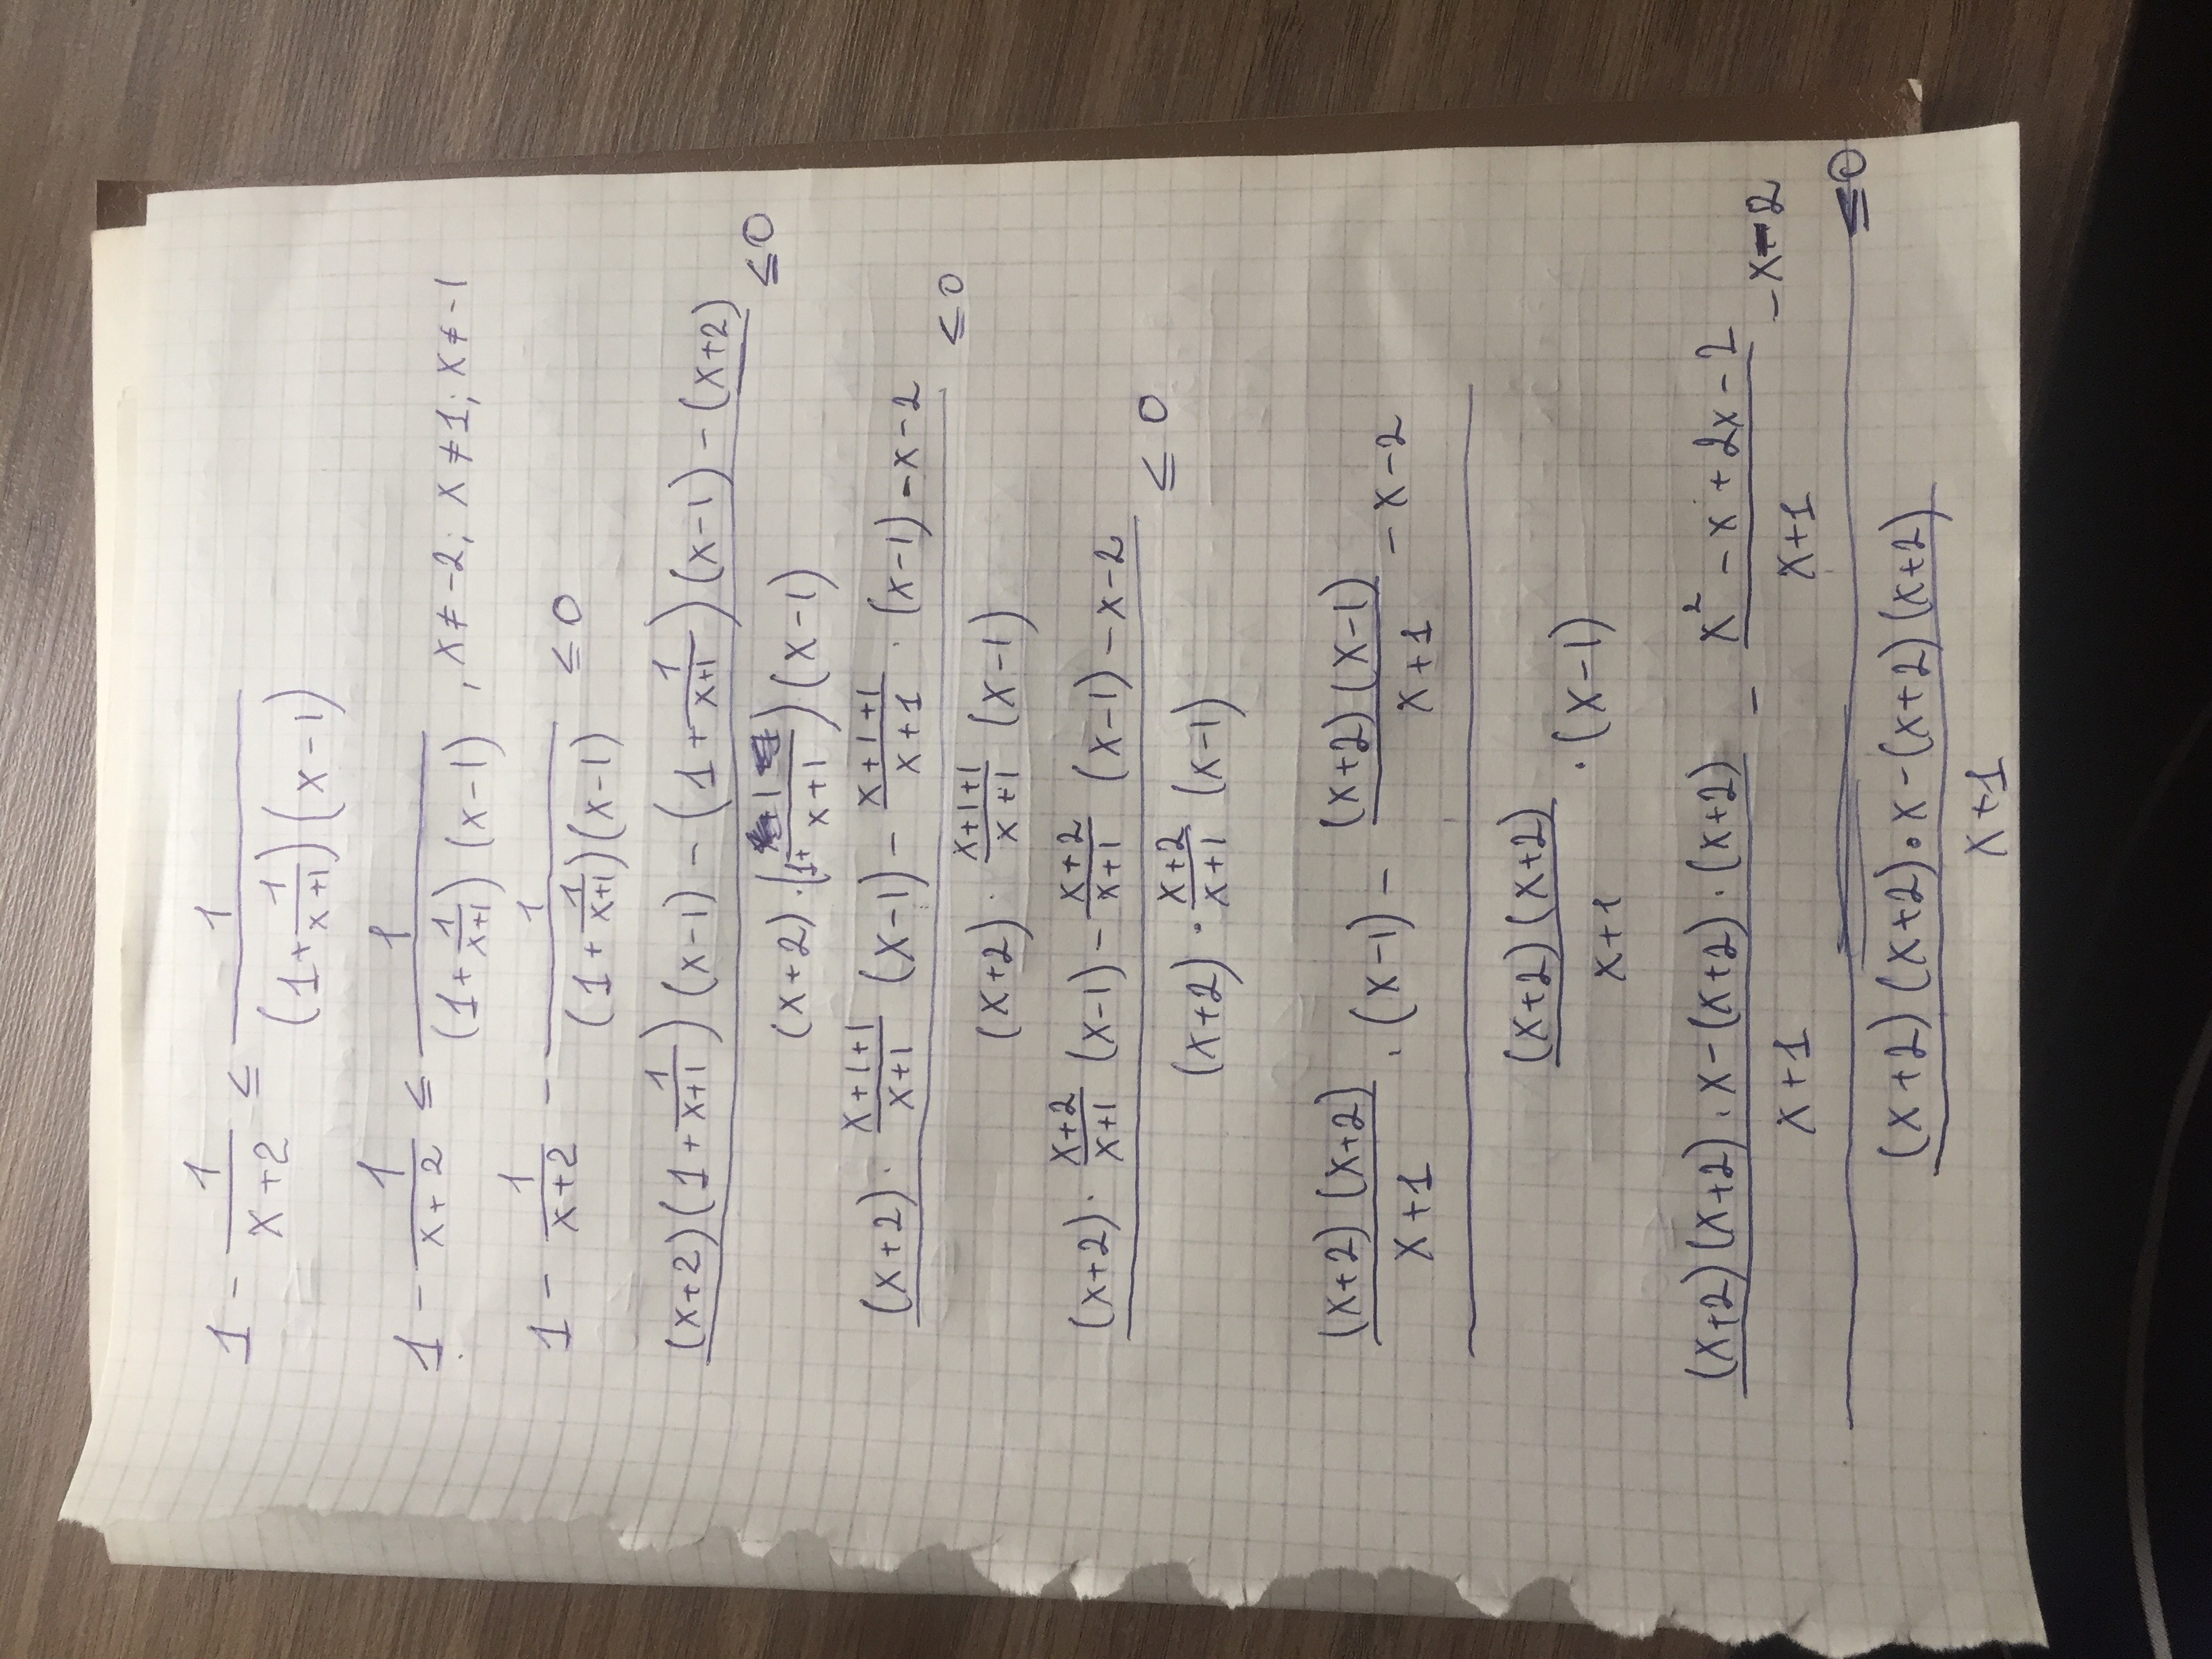 1 - 1/(x+2) ≤ 1/((1+1/(x+1))(x-1))
1 - 1/(x+2) ≤ 1/((1+1/(x+1))(x-1)) , x≠-2; x≠1; x≠-1
1 - 1/(x+2) - 1/((1+1/(x+1))(x-1)) ≤0
(x+2)(1+1/(x+1))(x-1)-(1+1/(x+1))(x-1)-(x+2) ≤0
(x+2)·(1+1/(x+1))(x-1)
(x+2)·(x+1+1)/(x+1) (x-1)-(x+1+1)/(x+1)·(x-1)-x-2 ≤0
(x+2)·(x+1+1)/(x+1) (x-1)
(x+2)·(x+2)/(x+1) (x-1)-(x+2)/(x+1) (x-1)-x-2 ≤0
(x+2)·(x+2)/(x+1) (x-1)
(x+2)(x+2)/(x+1)·(x-1)-(x+2)(x-1)/(x+1) -x-2
(x+2)(x+2)/(x+1)·(x-1)
((x+2)(x+2)·x-(x+2)·(x+2))/(x+1) - (x²-x+2x-2)/(x+1) -x-2 ≤0
((x+2)(x+2)·x-(x+2)(x+2))/(x+1)